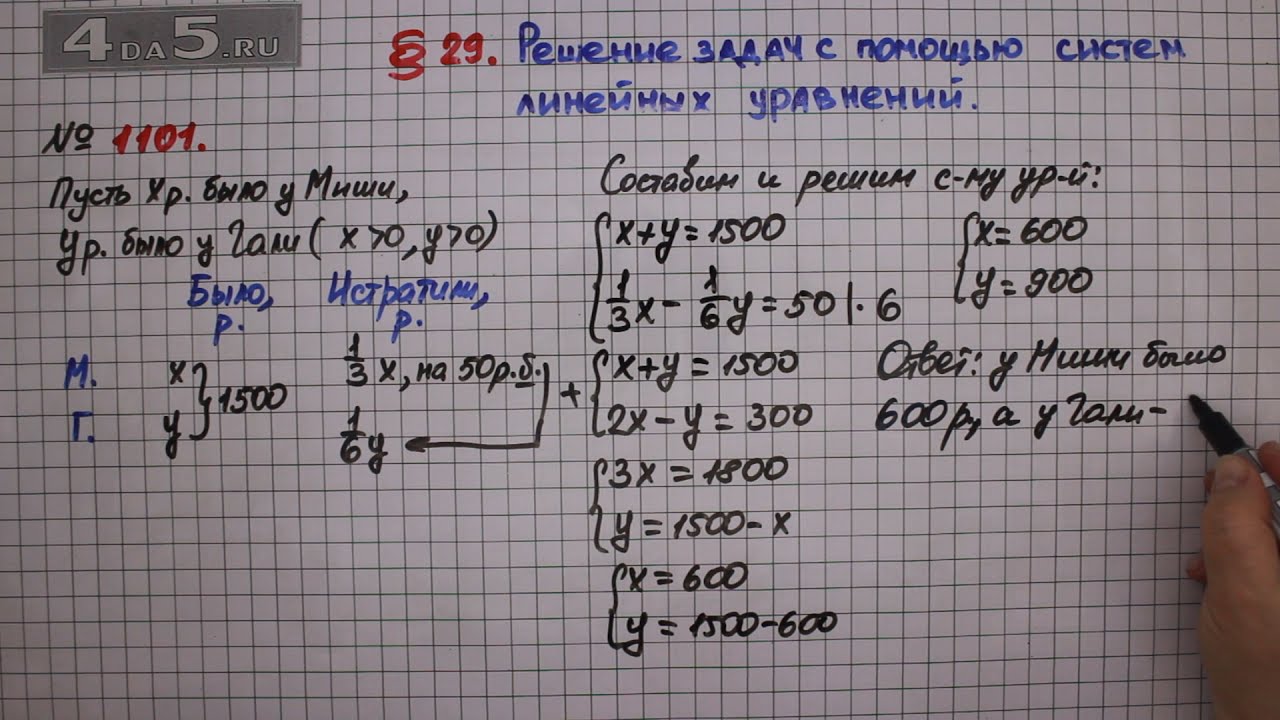 4DA5.RU
§ 29. Решение задач с помощью систем
линейных уравнений.
№ 1101.
Пусть х р. было у Миши,
у р. было у Гали ( x>0, y>0)
Было, Истратили,
р. р.
М. x 1/3 x, на 50 р.б.
1500
Г. y 1/6 y
Составим и решим с-му ур-й:
x+y=1500
1/3 x - 1/6 y = 50 |· 6
+ x+y=1500
2x-y=300
3x=1800
y=1500-x
x=600
y=1500-600
x=600
y=900
Ответ: у Миши было
600 р, а у Гали-